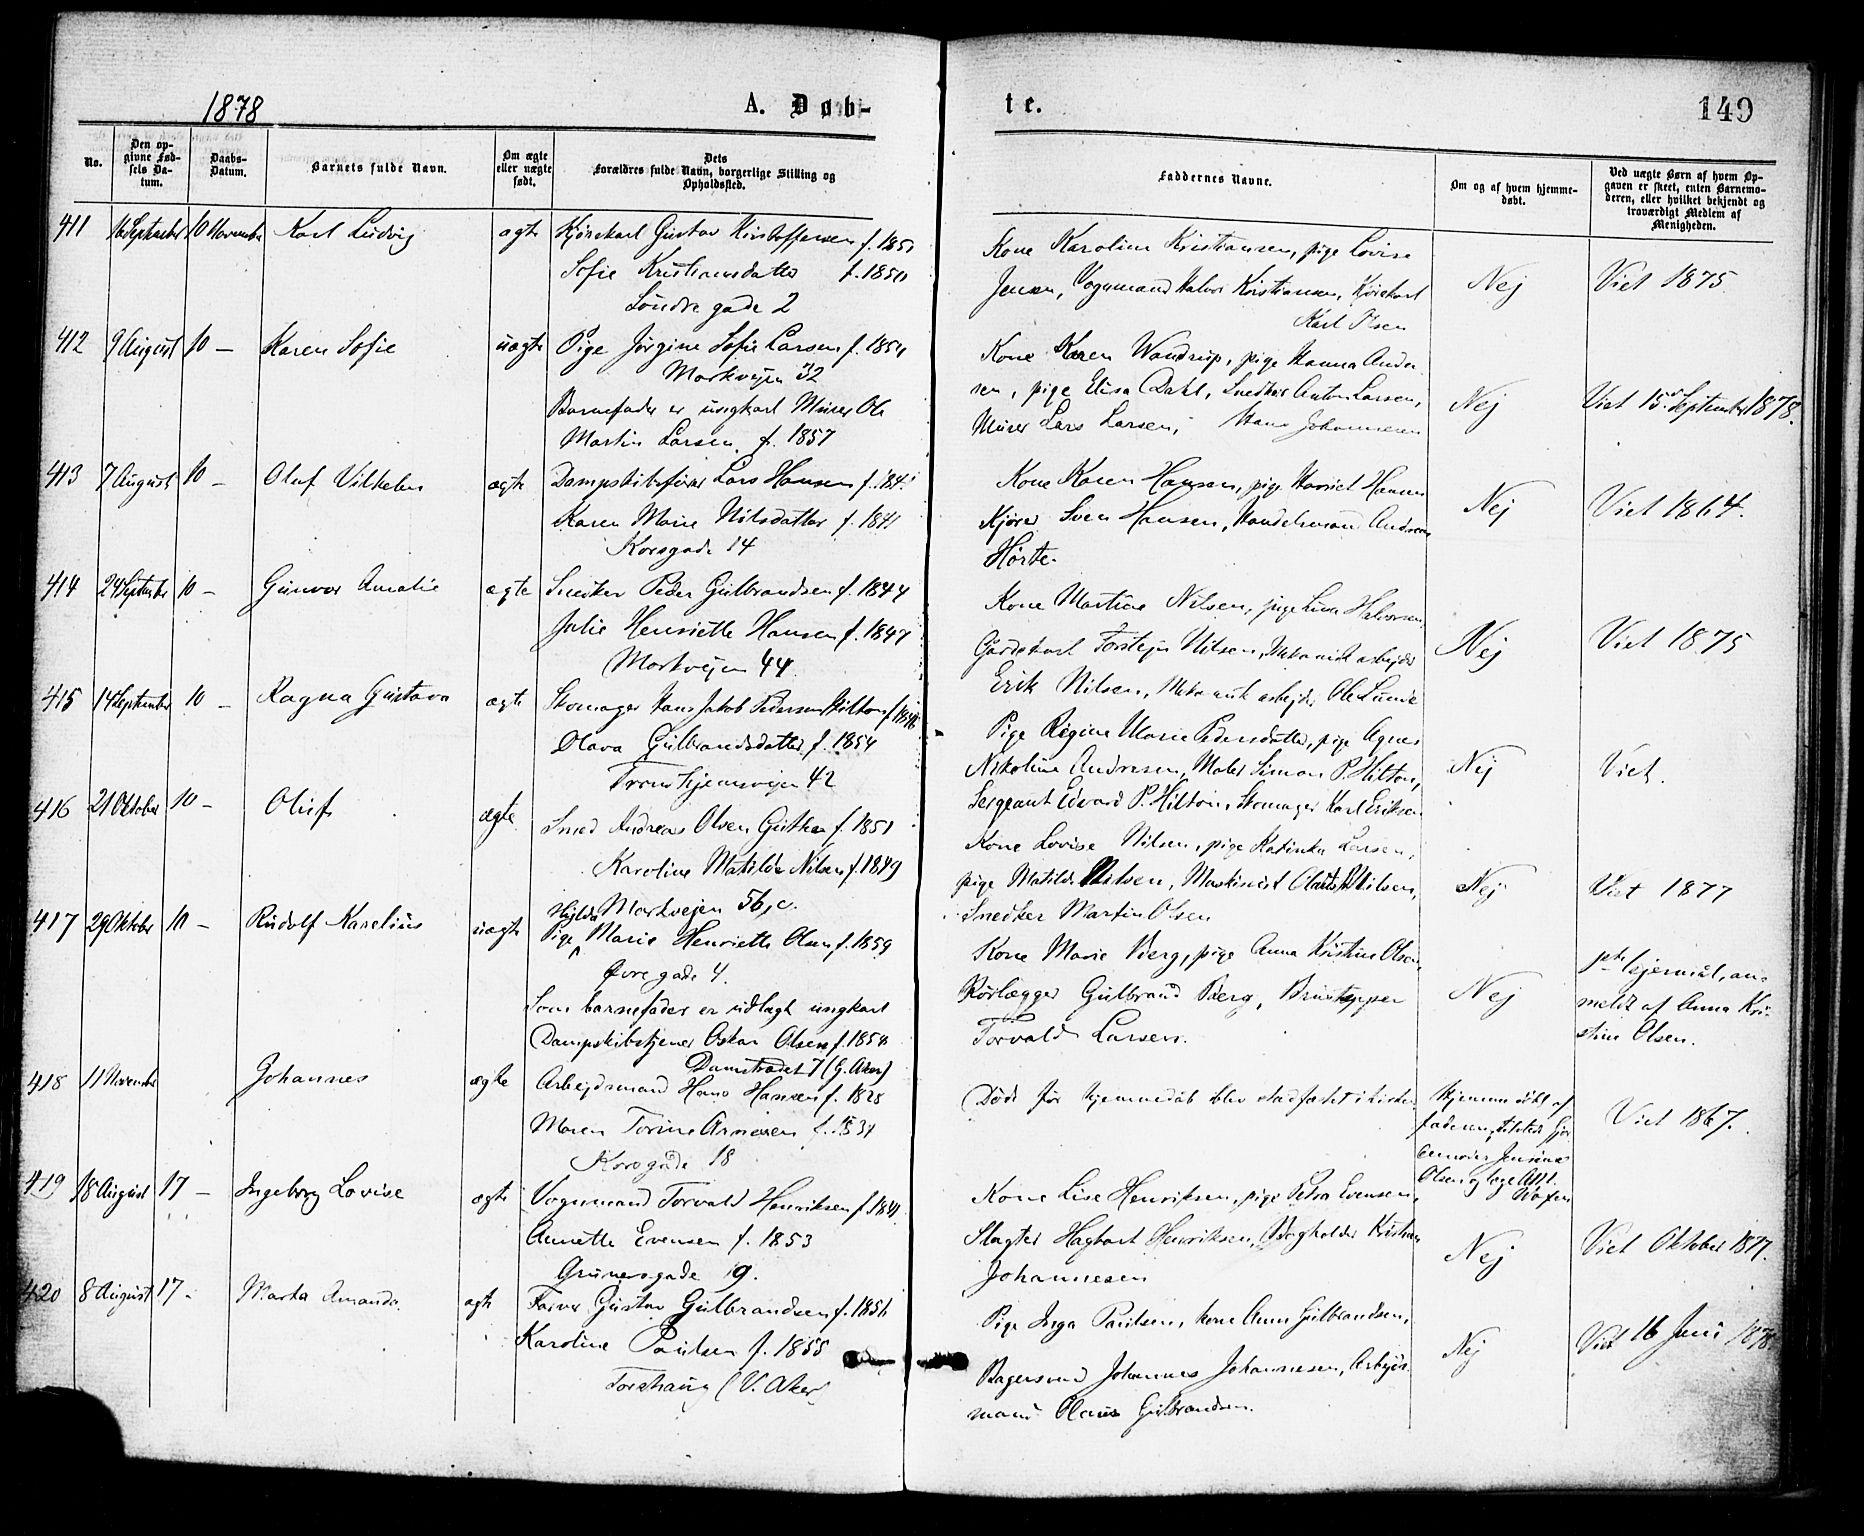 1878
A. Døb-
te.
149
No.
Den opgivne Fødsels Datum.
Daabs-Datum.
Barnets fulde Navn.
Om ægte eller uægte født.
Dets Forældres fulde Navn, borgerlige Stilling og Opholdssted.
Faddernes Navne.
Om og af hvem hjemmedøbt.
Ved uægte Børn af hvem Opgaven er skeet, enten Barnemoderen, eller hvilket bekjendt og troværdigt Medlem af Menigheden.
411 16 September 10 November Karl Ludvig ægte Kjørekarl Gustav Kristoffersen f. 1851
Sofie Kristiansdatter f. 1850
Søndre gade 2
Kone Karoline Kristiansen, pige Lovise
Jensen, Vognmand Halvor Kristiansen, Kjørekarl
Karl
Nej
Viet 1875
412 9 August 10 — Karen Sofie uægte Pige Jørgine Sofie Larsen f. 1854
Markvejen 32
Barnefader er ungkarl Murer Ole
Martin Larsen f. 1857
Kone Karen Wandrup, pige Hanna Ander
sen, pige Elisa Dahl, Snedker Anton Larsen,
Murer Lars Larsen, Hans Johannesen
Nej
Viet 15 September 1878.
413 7 August 10 — Oluf Vilhelm ægte Dampskibsfører Lars Hansen f. 184
Karen Marie Nilsdatter f. 1841
Korsgade 14
Kone Karen Hansen, pige Harriet Hansen
Kjører Sven Hansen, Handelsmand Andreas
Hørte.
Nej
Viet 1864.
414 24 September 10 — Gunvor Amalie ægte Snedker Peder Gulbrandsen f. 1844
Julie Henriette Hansen f. 1847
Markvejen 44
Kone Martine Nilsen, pige Lina Halvorsen,
Gardekarl Torstejn Nilsen, Mekanisk arbejder
Erik Nilsen, Mekanisk arbejder Ole Lunde
Nej
Viet 1875
415 14 September 10 — Ragna Gustava ægte Skomager Hans Jakob Pedersen Hilton f. 1848
Olava Gulbrandsdatter f. 1854
Trondhjemsvejen 42
Pige Regine Marie Pedersdatter, pige Agnes
Nikoline Andresen, Maler Simon P. Hilton,
Sergeant Edvard P. Hilton, Skomager Karl Eriksen
Nej
Viet.
416 21 Oktober 10 — Oluf ægte Smed Andreas Olsen f. 1851
Karoline Matilde Nilsen f. 1849
Markvejen 56, c.
Kone Lovise Nilsen, pige Katinka Larsen,
pige Matilde Nilsen, Maskinist Nilsen,
Snedker Martin Olsen
Nej
Viet 1877
417 29 Oktober 10 — Rudolf Karelius uægte Pige Hilda Marie Henriette Olsen f. 1859
Øvre gade 4.
Som barnefader er udlagt ungkarl
Dampskibstjener Oskar Olsen f. 1854
Damstrædet 7 (G. Aker)
Kone Marie Berg, pige Anna Kristine Olsen,
Rørlægger Gulbrand Berg,
Torvald Larsen.
Nej
1ste lejermål, an-
meldt af Anna Kri-
stine Olsen.
418 11 November Johannes ægte Arbejdsmand Hans Hansen f. 1828
Maren Torine Arnesen f. 1834
Korsgade 18
Døde før hjemmedåb blev stadfæstet i kirken
Hjemmedøbt af
faderen,
Jensine
Olsen og læge
Viet 1867.
419 18 August 17 — Ingeborg Lovise ægte Vognmand Torvald Henriksen f. 1841
Annette Evensen f. 1853
Grünersgade 9.
Kone Lise Henriksen, pige Petra Evensen,
Slagter Hagbart Henriksen, Kristian
Johannesen
Nej
Viet Oktober 1877.
420 8 August 17 — Marta Amanda. ægte Farver Gustav Gulbrandsen f. 1856
Karoline Paulsen f. 1855
Torshaug (V. Aker)
Pige Inga Paulsen, kone Anne Gulbrandsen,
Bagersvend Johannes Johannesen, Arbejds
mand Olaus Gulbrandsen.
Nej
Viet 16 Juni 1878